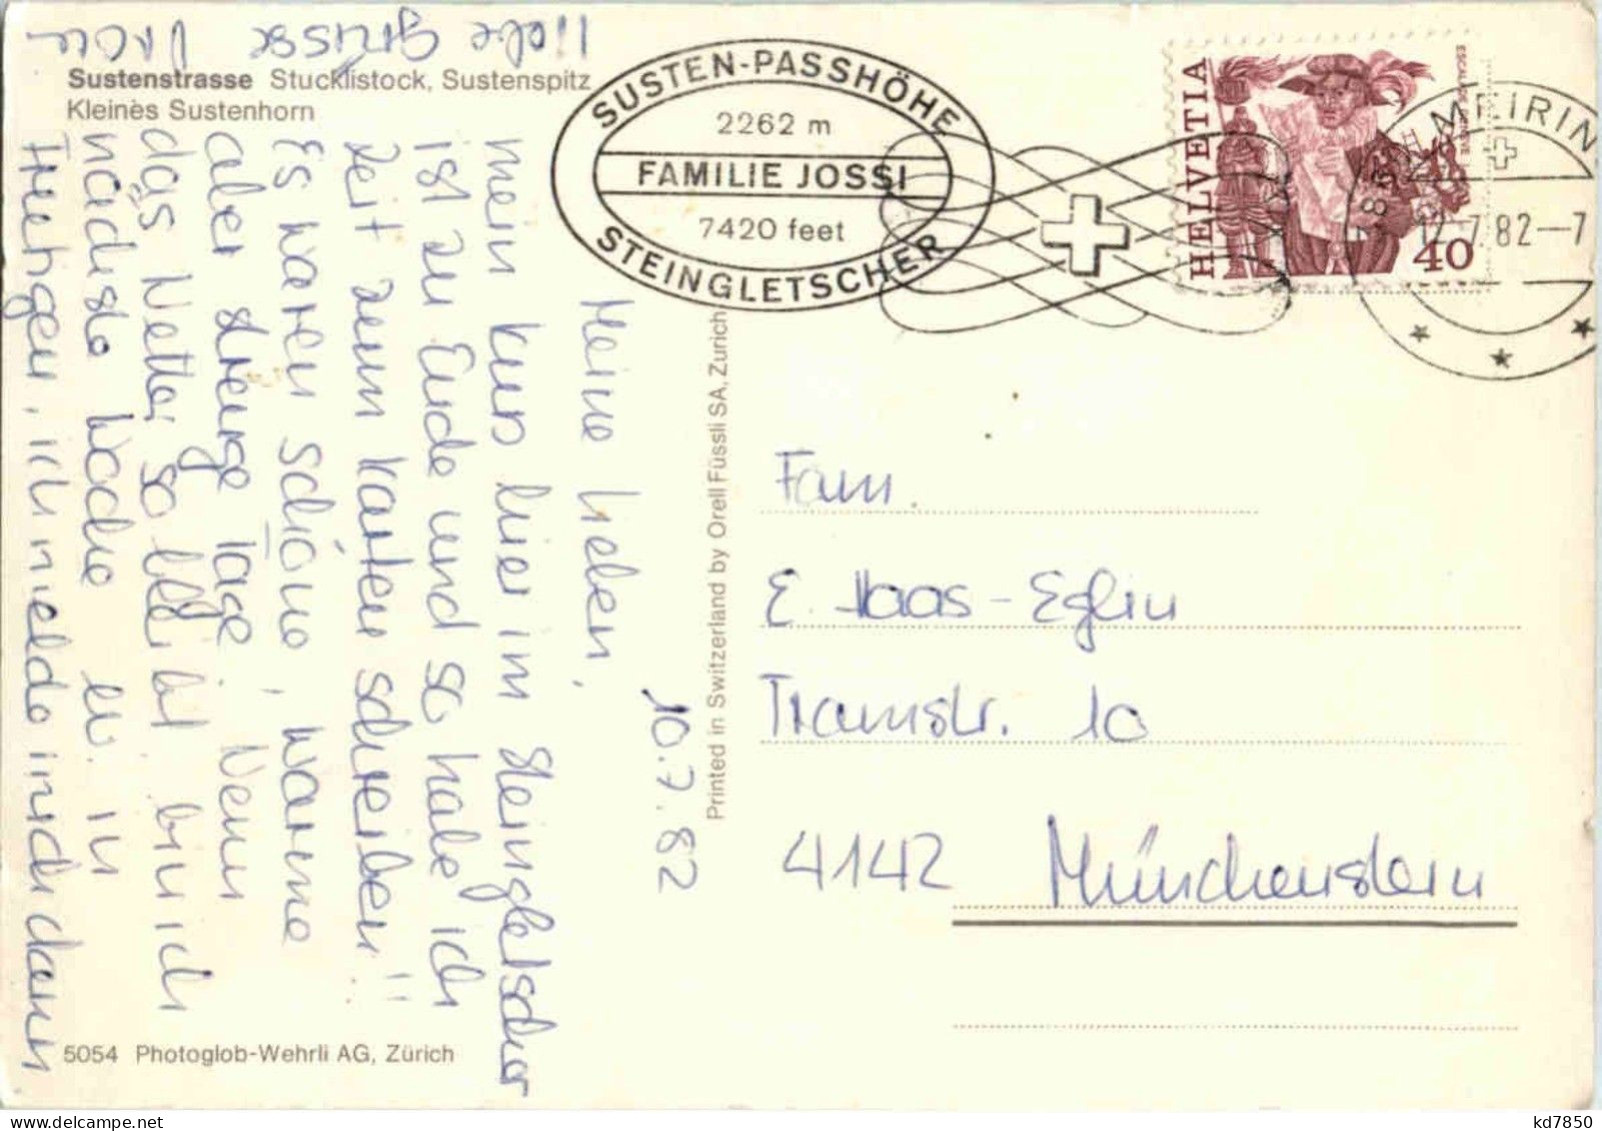 Sustenstrasse Stucklistock, Sustenspitz
Kleines Sustenhorn
SUSTEN-PASSHÖHE
2262 m
FAMILIE JOSSI
7420 feet
STEINGLETSCHER
HELVETIA
40
MEIRIN
12.7.82-7
10.7.82
Meine Lieben,
mein Kurs hier im Steingletscher
ist zu Ende und so habe ich
Zeit zum Karten schreiben!!
Es waren schöne, warme
aber strenge Tage. Wenn
das Wetter so bleibt bin ich
nächste Woche ev. in
ich melde mich dann
Liebe Grüsse
Printed in Switzerland by Orell Füssli SA, Zürich
Fam.
E. Haas-Eglin
Tramstr. 10
4142 Münchenstein
5054 Photoglob-Wehrli AG, Zürich
kd7850